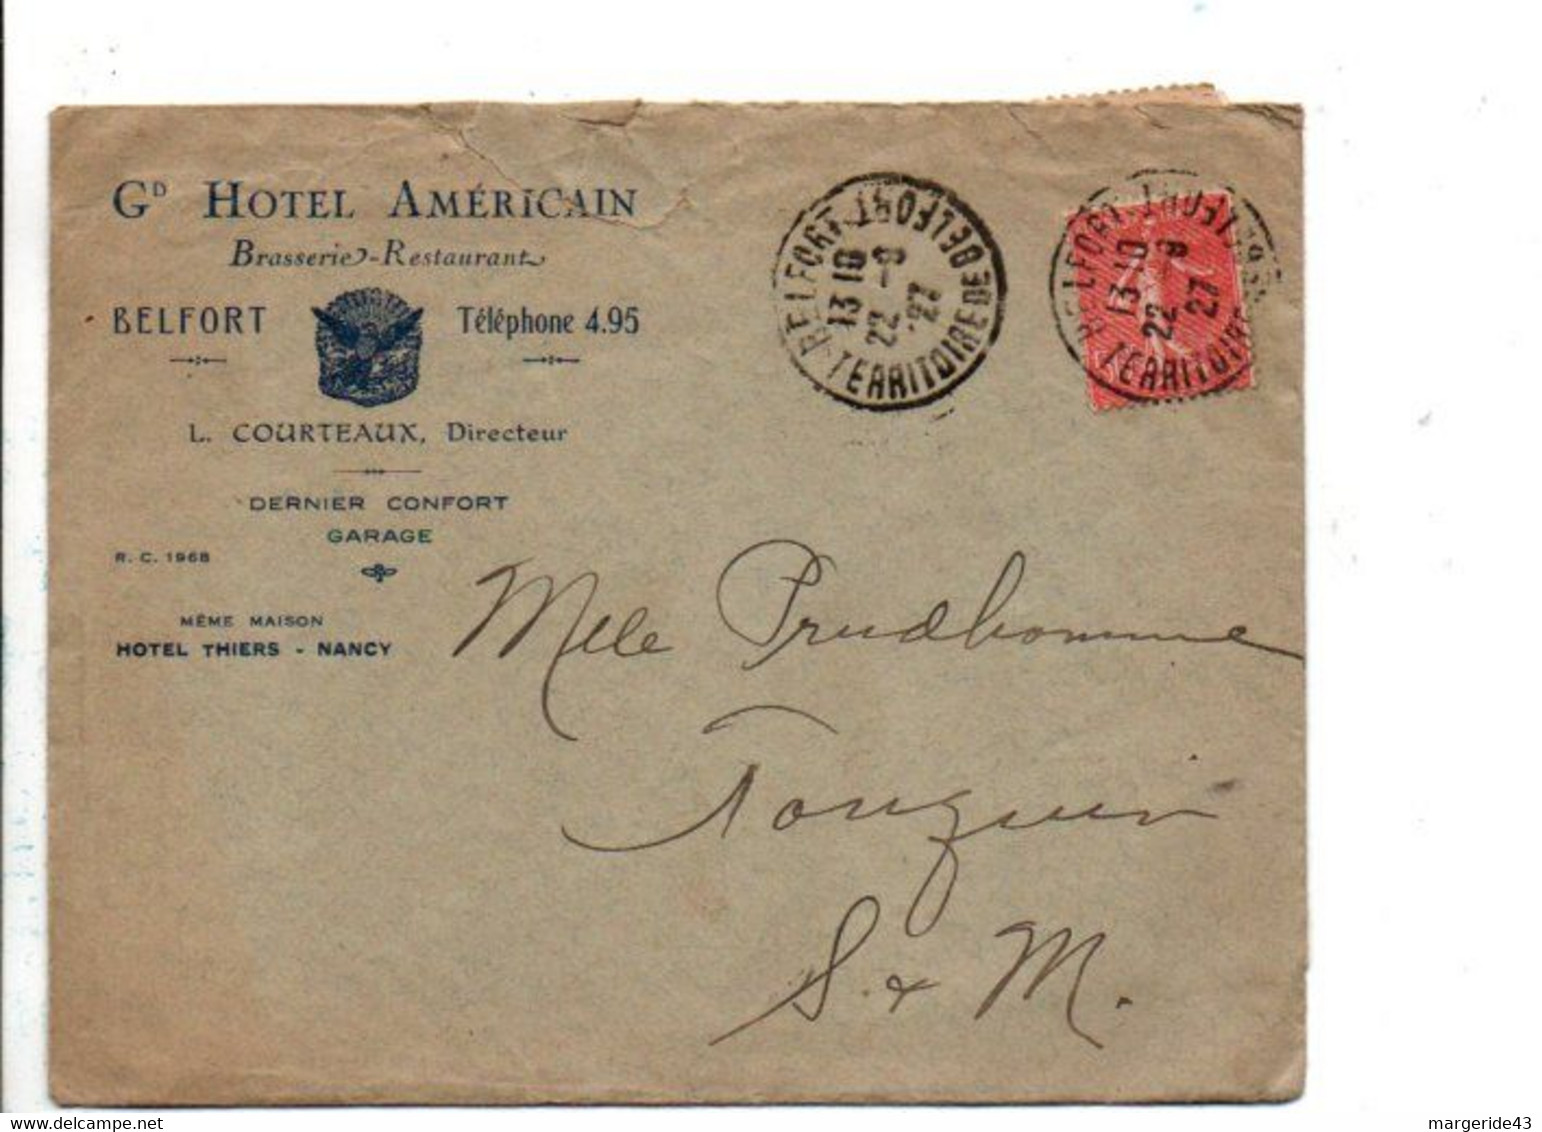 GD HOTEL AMÉRICAIN
Brasserie-Restaurant
BELFORT Téléphone 4.95
L. COURTEAUX, Directeur
DERNIER CONFORT
GARAGE
R. C. 1968
MÊME MAISON
HOTEL THIERS - NANCY
BELFORT
13 10
22 -8
27
TERRITOIRE DE BELFORT
BELFORT
13 10
22 -8
27
TERRITOIRE
Melle Prudhomme
Touquin
S. & M.
margeride43